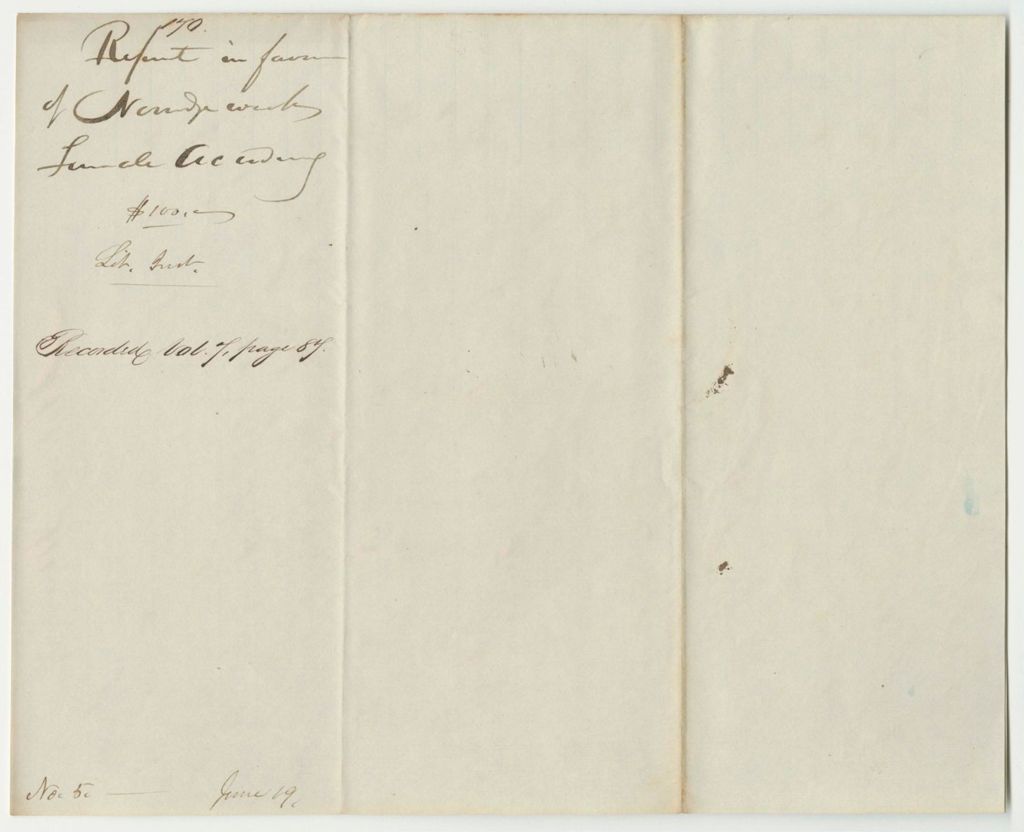 170.
Report in favor
of Norridgewock
Female Academy
$100.
Lit. Inst.
Recorded, Vol. 7, page 87.
No. 5. — June 19,